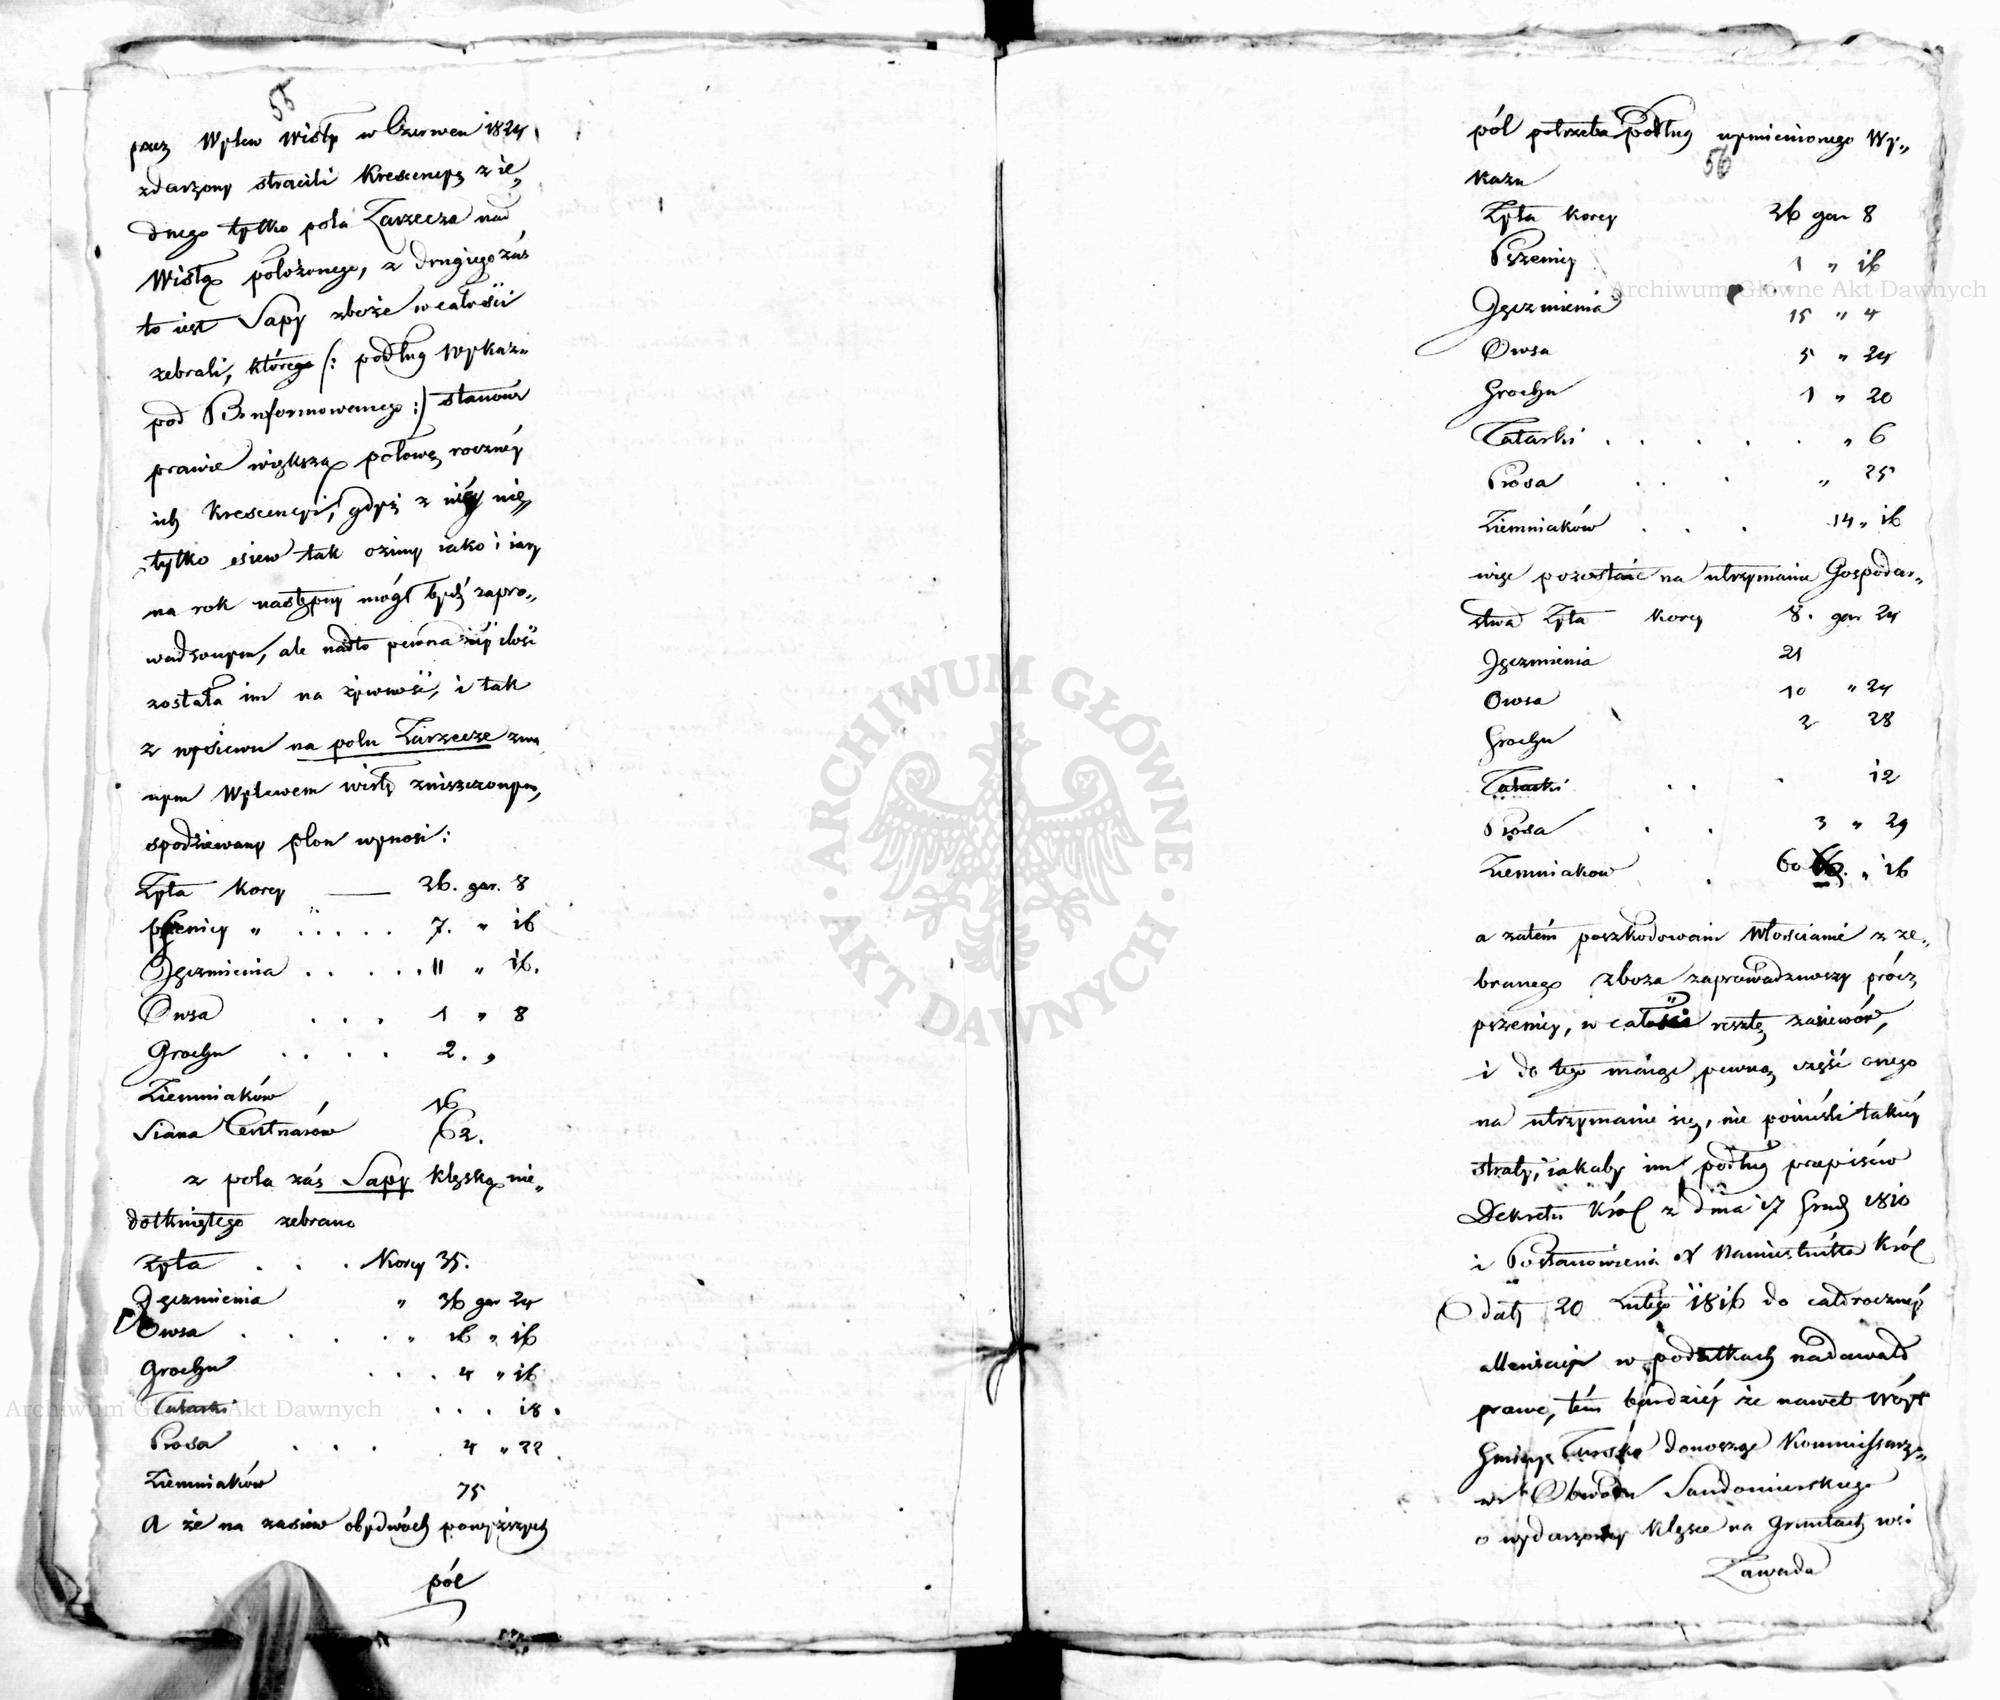 55
przez Wylew Wisły w Czerwcu 1824
zdarzony stracili Krescencyę z ie„
dnego tylko pola Zarzecza nad
Wisłą położonego, z drugiego zaś
to iest Sapy zboże w całości
zebrali, którego (: podług Wykazu
pod B. uformowanego :) stanowi
prawie większą połowę roczney
ich Krescencyi, gdyż z niéy nie„
tylko osiew tak ozimy iako i iary
na rok następny mógł bydź zapro„
wadzonym, ale nadto pewna iéy ilość
została im na żywność, i tak
z wysiewu na polu Zarzecze zwa
nym Wylewem wisły zniszczonym,
spodziewany plon wynosi:
Żyta Korcy —— 26. gar. 8
pszenicy „ ..... 7. „ 16
Jęczmienia ..... 11 „ 16.
Owsa ... 1 „ 8
Grochu .... 2. „
Ziemniaków 16
Siana Centnarów 62.
z pola zaś Sapy klęską nie„
dotkniętego zebrano
Żyta ... Korcy 35.
Jęczmienia „ 36 gar 24
Owsa .... „ 16 „ 16
Grochu ... 4 „ 16
Tatarki ... 18.
Prosa ... 4 „ 22.
Ziemniaków 75
A że na zasiew obydwóch powyższych
pól
pól potrzeba podług wymienionego Wy„
56
kazu
Żyta Korcy 26 gar 8
Pszenicy 1 „ 16
Jęczmienia 15 „ 4
Owsa 5 „ 24
Grochu 1 „ 20
Tatarki ..... „ 6
Prosa ... „ 25
Ziemniaków ... 14 „ 16
więc pozostaie na utrzymanie Gospodar„
stwa Żyta Korcy 8. gar 24
Jęczmienia 21
Owsa 10 „ 24
Grochu 2 28
Tatarki ... 12
Prosa .. 3 „ 29
Ziemniakow . 60 „ 16
a zatém poszkodowani Włościanie z ze„
branego zboża zaprowadziwszy prócz
pszenicy, w całości resztę zasiewów,
i do tego maiąc pewną część onego
na utrzymanie się, nie ponieśli takiéy
straty, iakaby im podług przepisów
Dekretu Król z dnia 17 Grud 1810
i Postanowienia X Namiestnika Król
O daty 20 Lutego 1816 do całoroczney
allewiacyi w podatkach nadawała
prawo, tém bardziéy że nawet Wóyt
Gminy Tursko donosząc Kommissarzo„
wi Obwodu Sandomierskiego
o wydarzoney klęsce na Gruntach wsi
Zawada
Archiwum Główne Akt Dawnych
Archiwum Główne Akt Dawnych
ARCHIWUM GŁÓWNE
AKT DAWNYCH